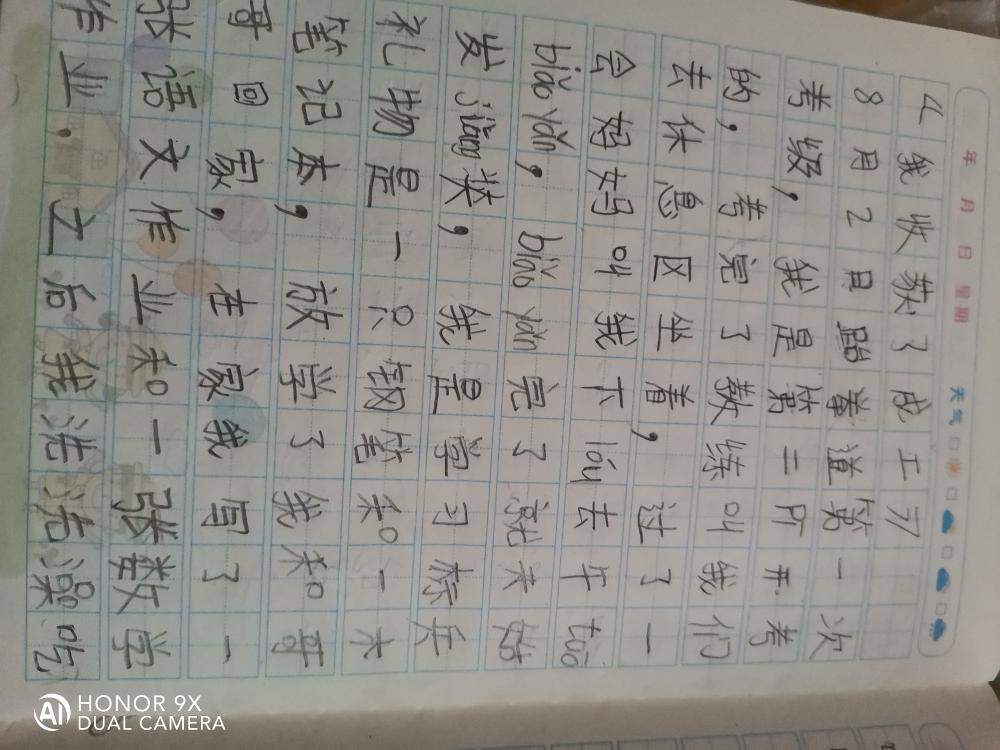 年 月 日 星期 天气
我收获了成工力
8月2日跆拳道第一次
考级，我是第二所开考
的，考完了教练叫我们
去休息区坐着，过了一
会妈妈叫我下lóu去
biǎo yǎn，biǎo yǎn完了就
发jiǎng奖，我是学习标兵
礼物是一只钢笔和一本
笔记本，放学了我和哥
哥回家，在家我写了一
张语文作业和一张数学
作业，之后我洗洁澡吃
HONOR 9X
DUAL CAMERA